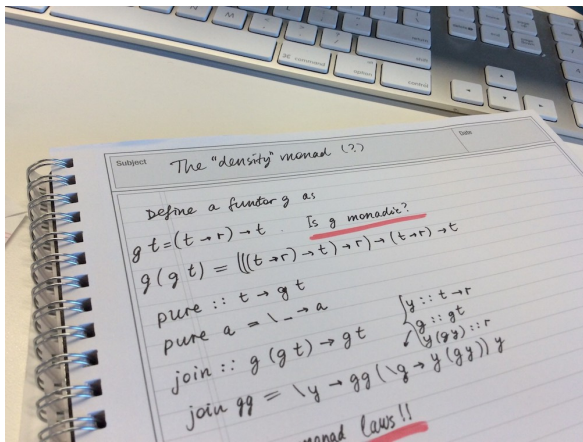 command
option
control
Subject
The "density" monad (?)
Date
Define a functor g as
g t = (t → r) → t. Is g monadic?
g(g t) = (((t → r) → t) → r) → (t → r) → t
pure :: t → g t
pure a = \_ → a
join :: g (g t) → g t
y :: t → r
g :: g t
y (g y) :: r
join gg = \y → gg (\g → y (g y)) y
monad laws!!